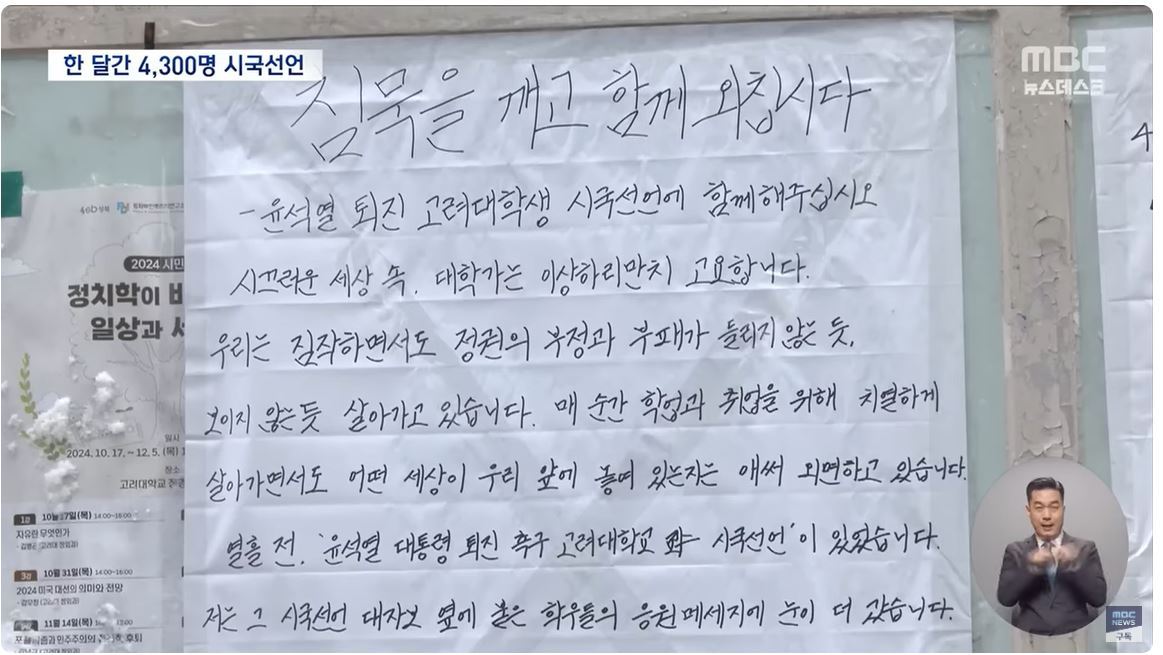 한 달간 4,300명 시국선언
MBC
뉴스데스크
침묵을 깨고 함께 외칩시다
- 윤석열 퇴진 고려대학생 시국선언에 함께해주십시오
시끄러운 세상 속, 대학가는 이상하리만치 고요합니다.
우리는 짐작하면서도 정권의 부정과 부패가 들리지 않는 듯,
보이지 않는 듯 살아가고 있습니다. 매 순간 학업과 취업을 위해 치열하게
살아가면서도 어떤 세상이 우리 앞에 놓여 있는지는 애써 외면하고 있습니다.
열흘 전, '윤석열 대통령 퇴진 촉구 고려대학교 시국선언'이 있었습니다.
저는 그 시국선언 대자보 옆에 붙은 학우들의 응원 메세지에 눈이 더 갔습니다.
2024 시민
정치학이
일상과
일시
2024. 10. 17. ~ 12. 5. (목)
장소
고려대학교
1강 10월 17일(목) 14:00~16:00
자유란 무엇인가
3강 10월 31일(목) 14:00~16:00
2024 미국 대선의 의미와 전망
11월 14일(목)
4
MBC
NEWS
구독